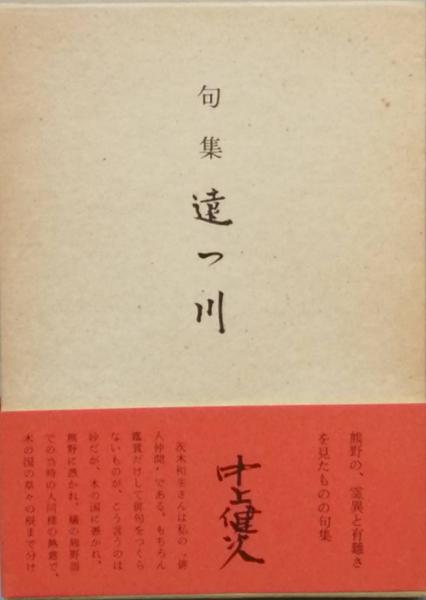 句集
遠つ川
熊野の、霊異と有難さ
を見たものの句集
中上健次
茨木和生さんは私の〝俳
人仲間〟である。もちろん
鑑賞だけして俳句をつくら
ないものが、こう言うのは
妙だが、木の国に憑かれ、
熊野に憑かれ、蟻の熊野詣
での当時の人同様の熱意で、
木の国の草々の根まで分け